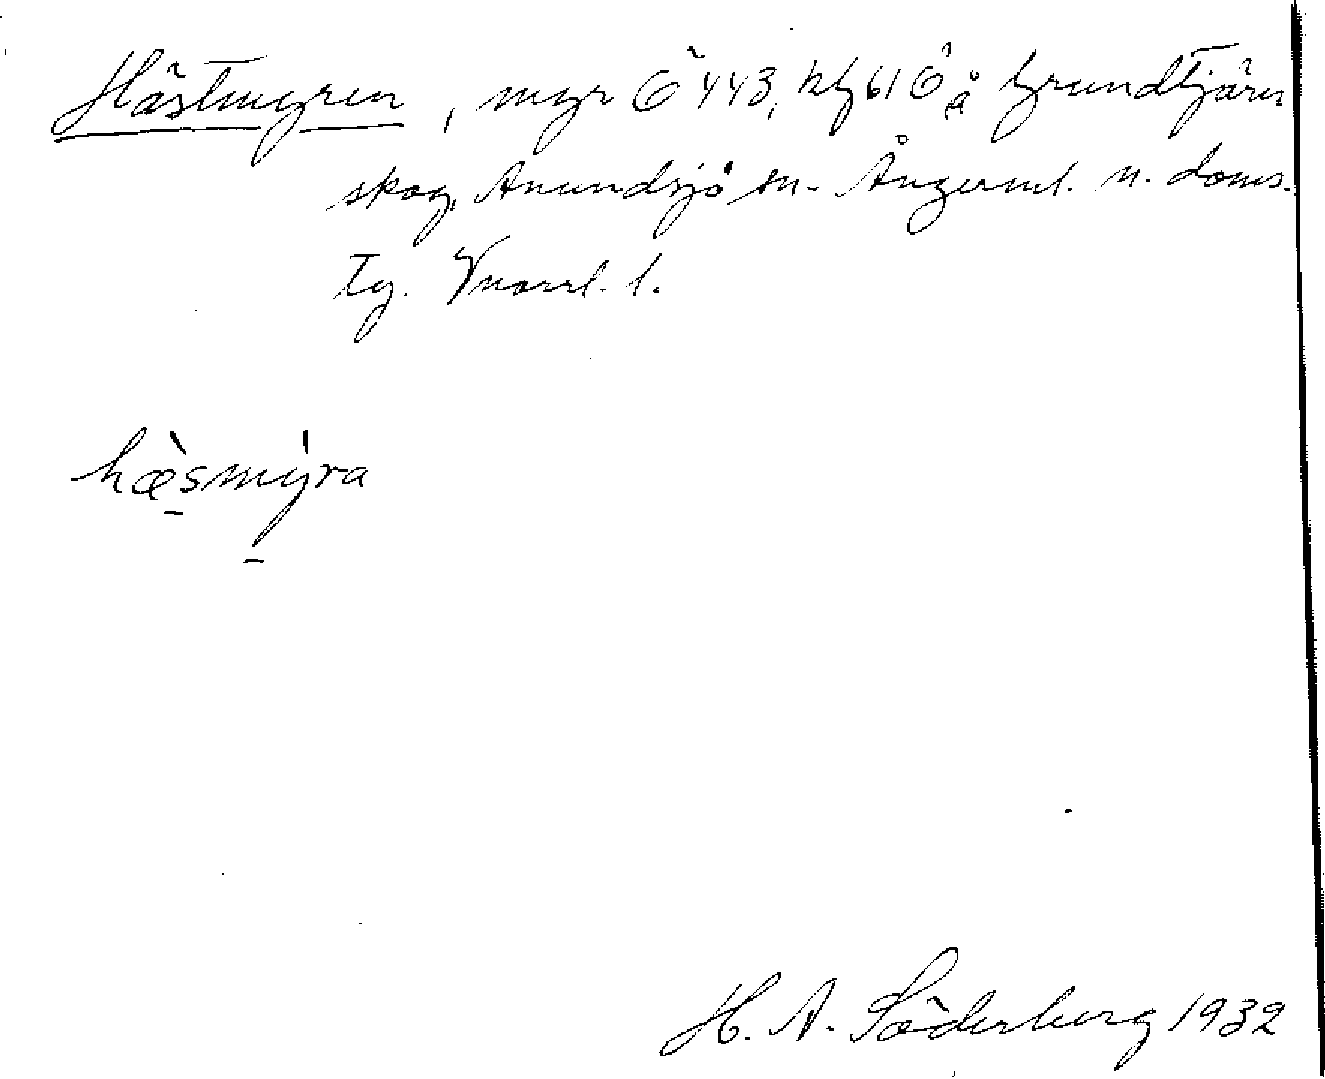 Hästmyren, myr Ö 443, kf 616 å Grundtjärn
skog, Anundsjö sn. Ångerml. n. doms.
tg. Vnorrl. l.
hæ̀smýra
H. A. Söderberg 1932